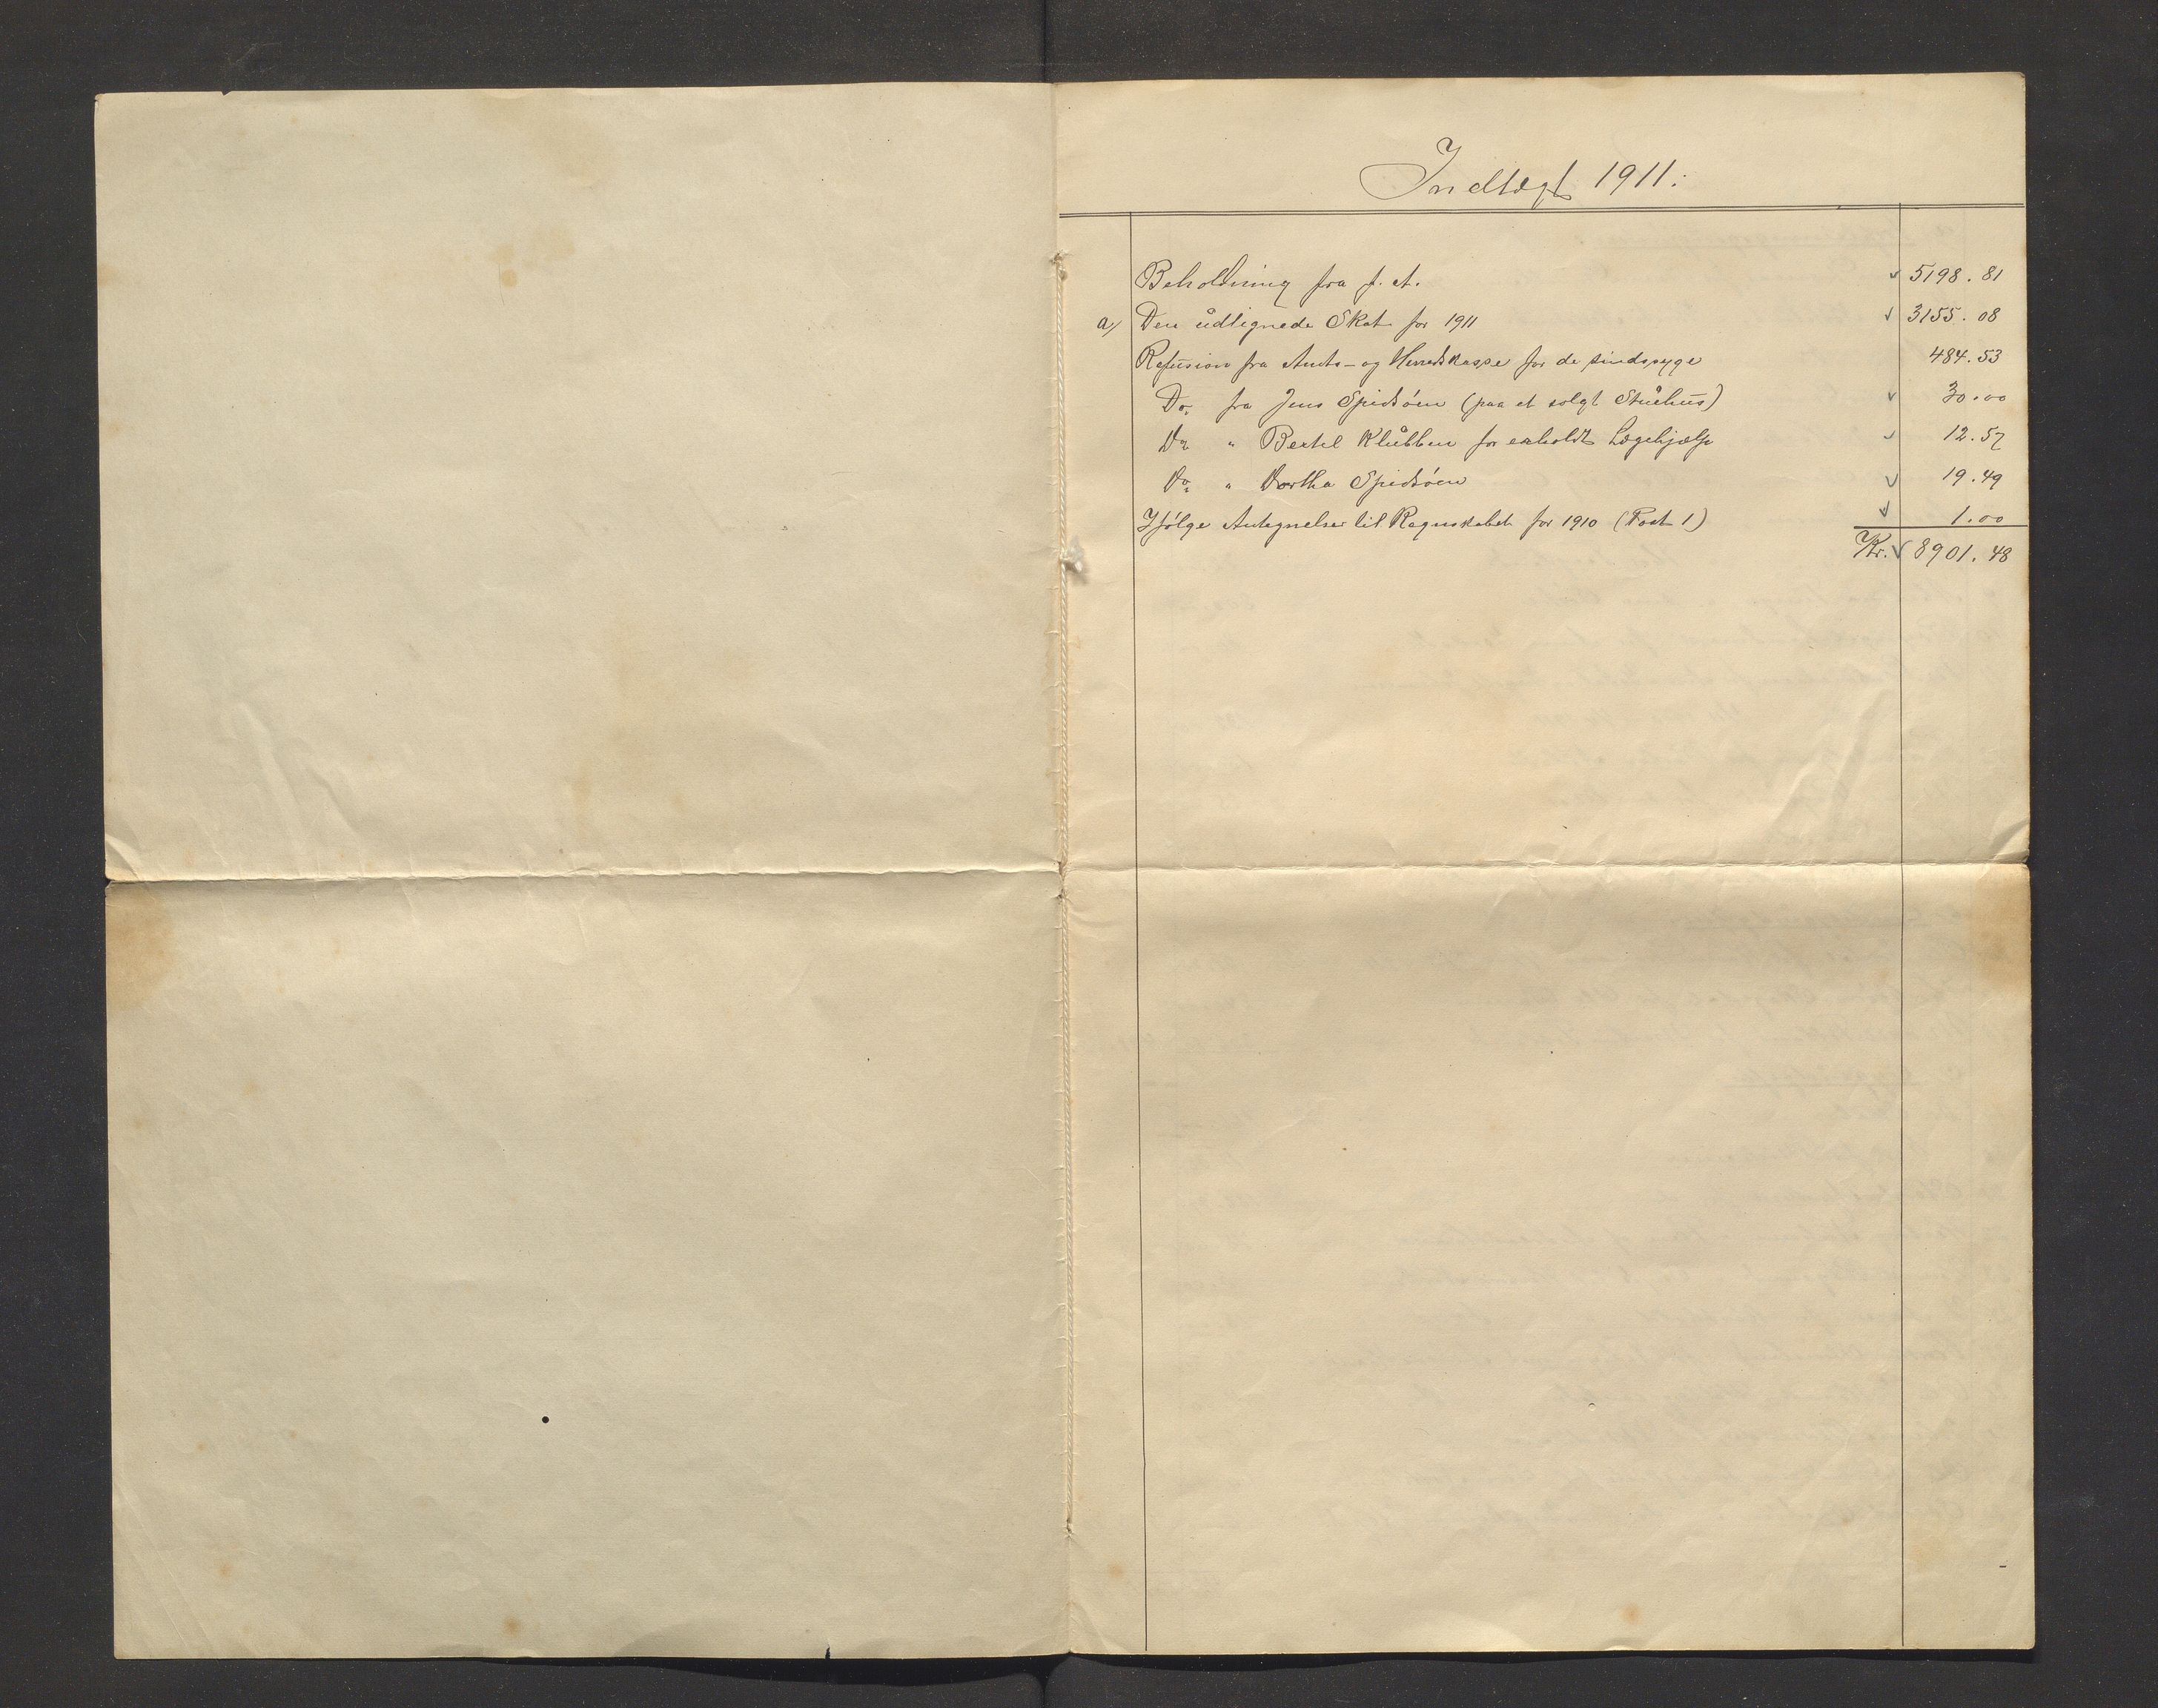 Indtægt 1911:
Beholdning fra f. A. 5198.81
a) Den udlignede Skat for 1911 3155.08
Refusion fra Amts- og Herredskasse for de sindssyge 484.53
Do. fra Jens Spidsøen (paa et solgt Stuehus) 30.00
Do. " Bertel Klubben for erholdt Lægehjælp 12.57
Do. " Dorthea Spidsøen 19.49
Ifølge Antegnelser til Regnskabet for 1910 (Post 1) 1.00
Kr. 8901.48